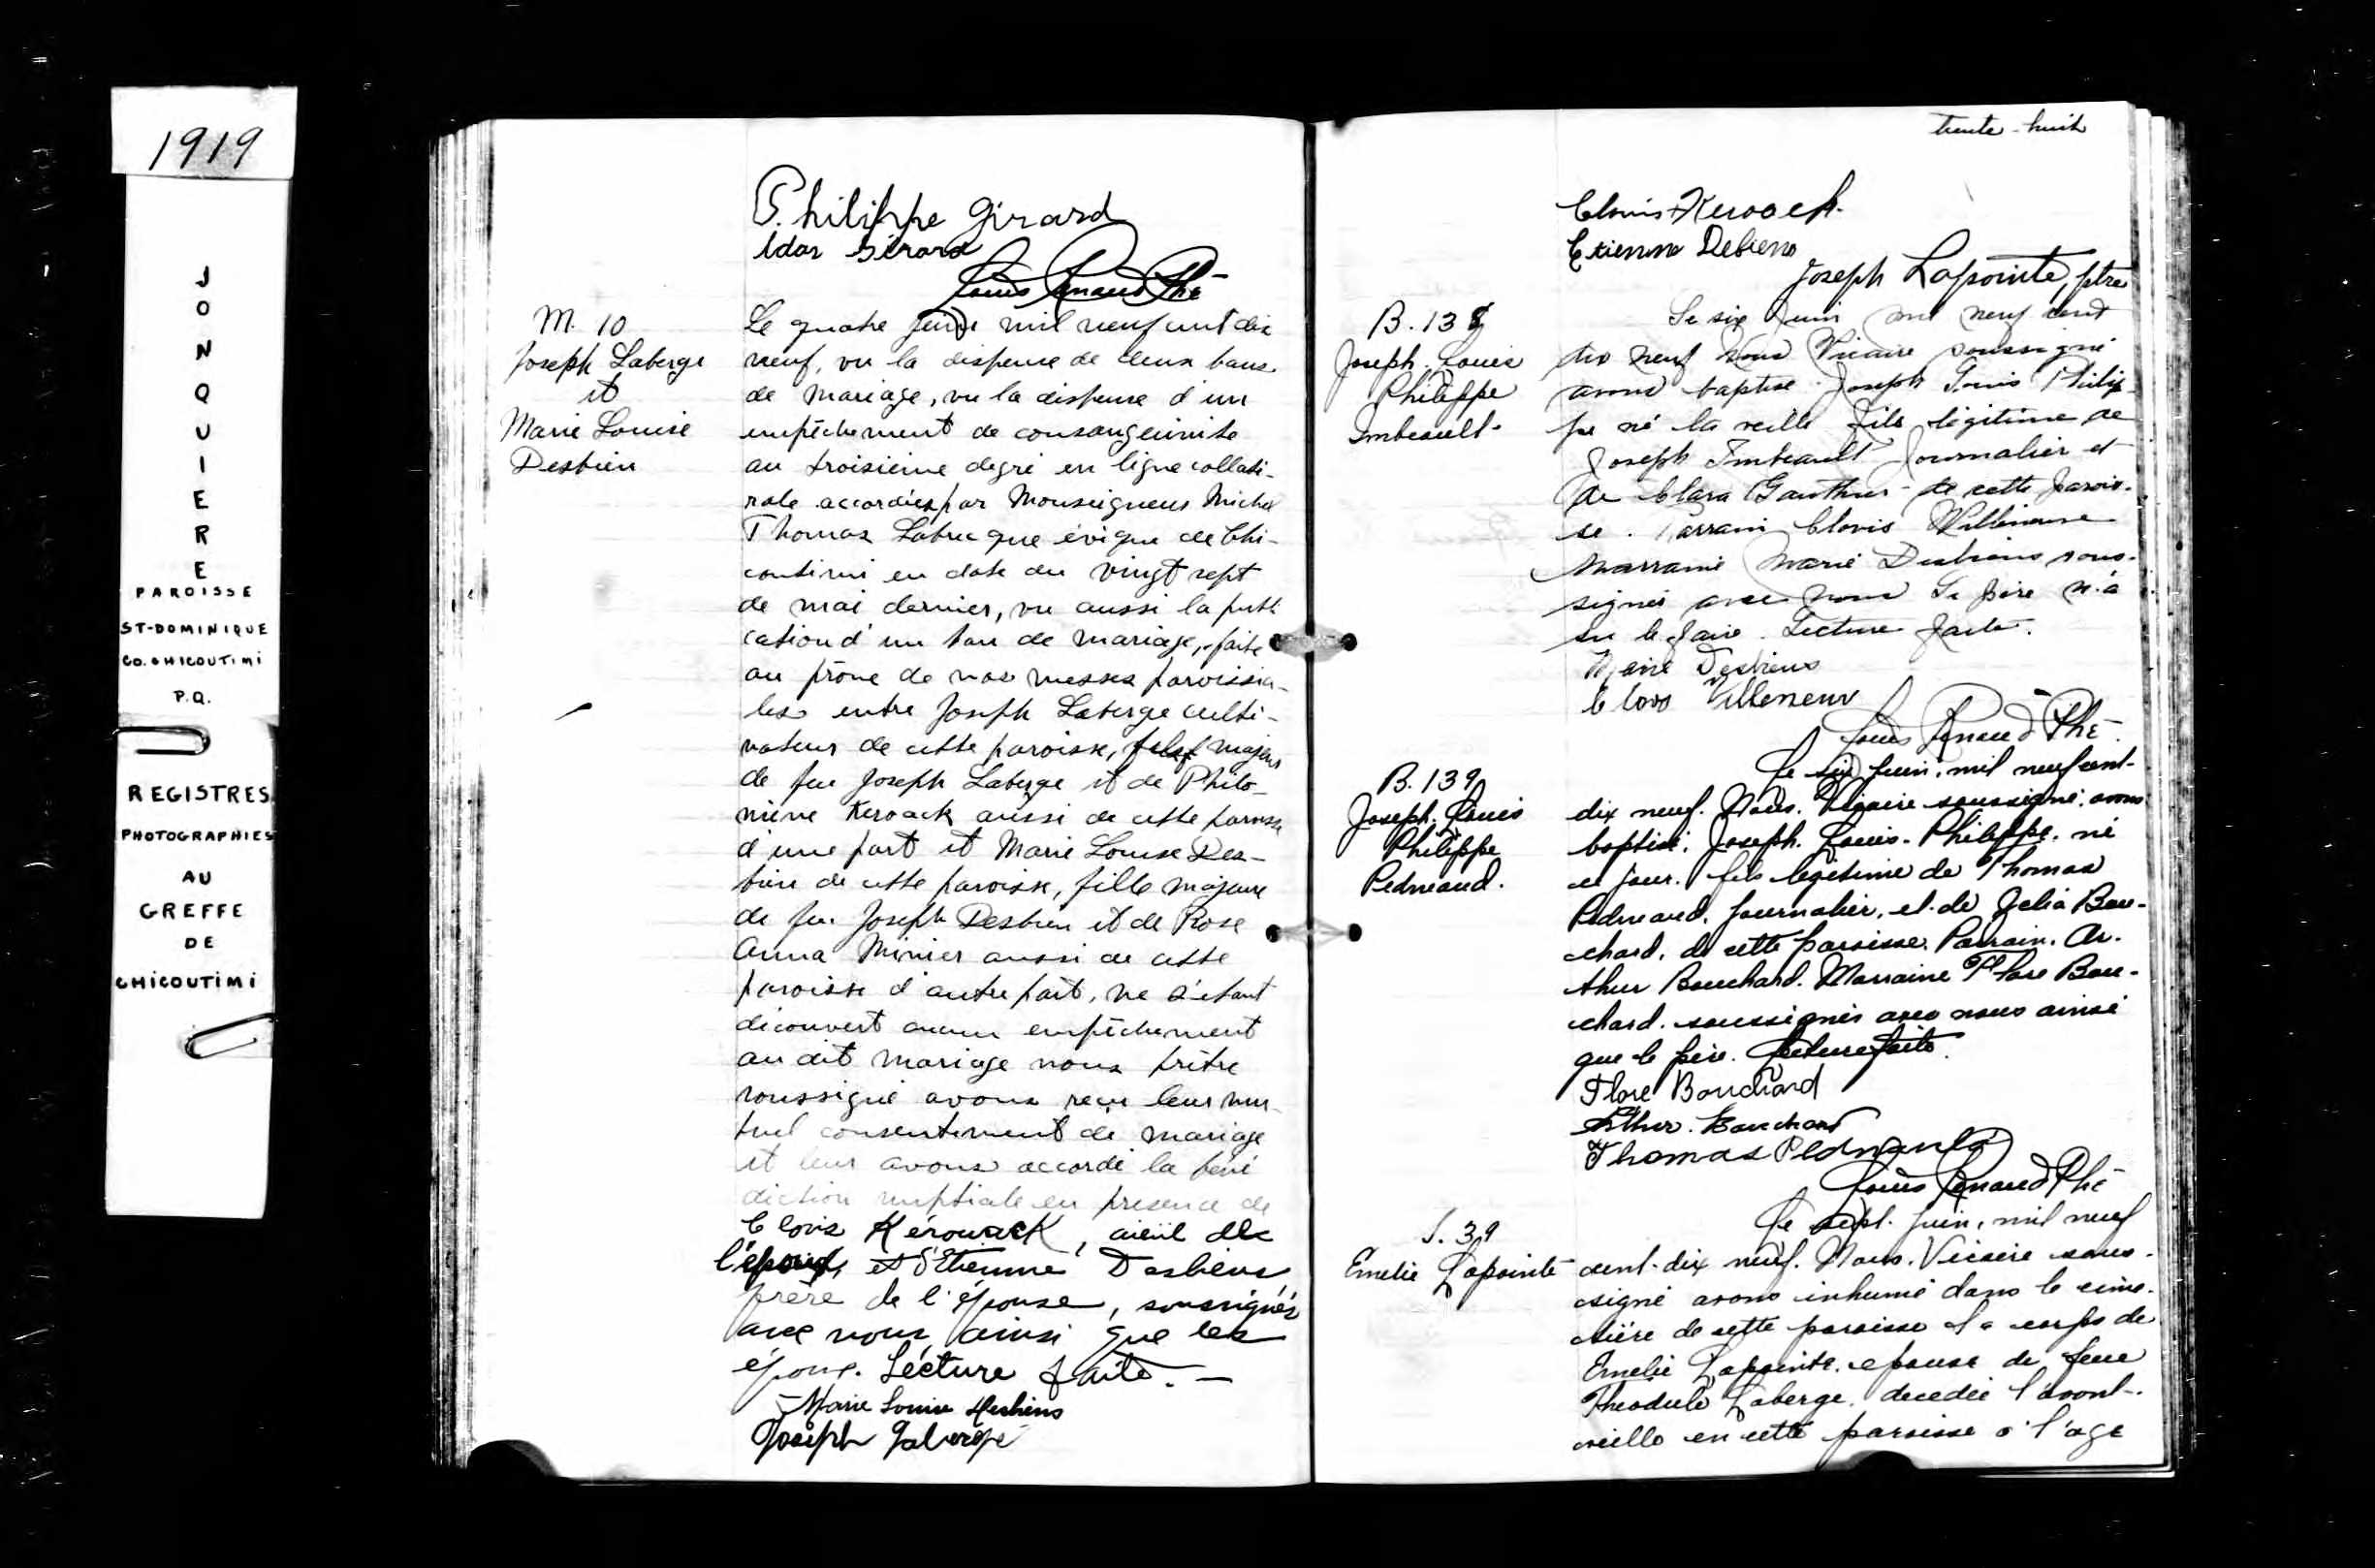 1919
JONQUIERE
PAROISSE
ST-DOMINIQUE
CO. CHICOUTIMI
P.Q.
REGISTRES
PHOTOGRAPHIES
AU
GREFFE
DE
CHICOUTIMI
Philippe Girard
Adas Girard
Louis Renaud Phē
M. 10
Joseph Laberge
et
Marie Louise
Desbien
Le quatre juin mil neuf cent dix
neuf, vu la dispense de deux bans
de mariage, vu la dispense d'un
empêchement de consanguinité
au troisième degré en ligne collaté-
rale accordées par Monseigneur Michel
Thomas Labrecque évêque de Chi-
coutimi en date du vingt sept
de mai dernier, vu aussi la publi
cation d'un ban de mariage, faite
au prône de nos messes paroissia-
les entre Joseph Laberge culti-
vateur de cette paroisse, fils majeur
de feu Joseph Laberge et de Philo-
mène Keroack aussi de cette paroisse
d'une part et Marie Louise Des-
bien de cette paroisse, fille majeure
de feu Joseph Desbien et de Rose
Anna Minier aussi de cette
paroisse d'autre part, ne s'étant
découvert aucun empêchement
au dit mariage nous prêtre
soussigné avons reçu leur mu-
tuel consentement de mariage
et leur avons accordé la béné
diction nuptiale en présence de
Clovis Kérouack, aieül de
l'époux, et d'Etienne Desbiens
frère de l'épouse, soussignés
avec nous, ainsi que les
époux. Lecture faite. —
Marie Louise Desbiens
Joseph Laberge
trente-huit
Clovis Keroack
Etienne Debiens
Joseph Lapointe, ptre
B. 138
Joseph. Louis
Philippe
Imbeault.
Le six Juin mil neuf cent
dix neuf Nous Vicaire soussigné
avons baptisé Joseph Louis Philip-
pe né la veille fils légitime de
Joseph Imbeault Journalier et
de Clara Gauthier de cette Parois-
se. Parrain Clovis Villeneuve
Marraine Marie Desbiens sous-
signés avec nous Le père n'a
su le faire. Lecture faite.
Marie Desbiens
Clovs Villeneuv
Louis Renaud Phē
B. 139
Joseph. Louis
Philippe
Pedneaud.
Le six juin, mil neuf cent-
dix neuf. Nous. Vicaire soussigné. avons
baptisé. Joseph. Louis-Philippe. né
ce jour. fils légitime de Thomas
Pedneaud. journalier. et de Delia Bou-
chard. de cette paroisse. Parrain. Ar-
thur Bouchard. Marraine Flore Bou-
chard. soussignés avec nous ainsi
que le père. Lecture faite.
Flore Bouchard
Arthur. Bouchard
Thomas Pednault
Louis Renaud Phē
S. 39
Emelie Lapointe
Le sept. juin, mil neuf
cent-dix neuf. Nous. Vicaire sous-
signé avons inhumé dans le cime-
tière de cette paroisse le corps de
Emelie Lapointe. epouse de feue
Theodule Laberge. decedée l'avant-
veille en cette paroisse à l'age